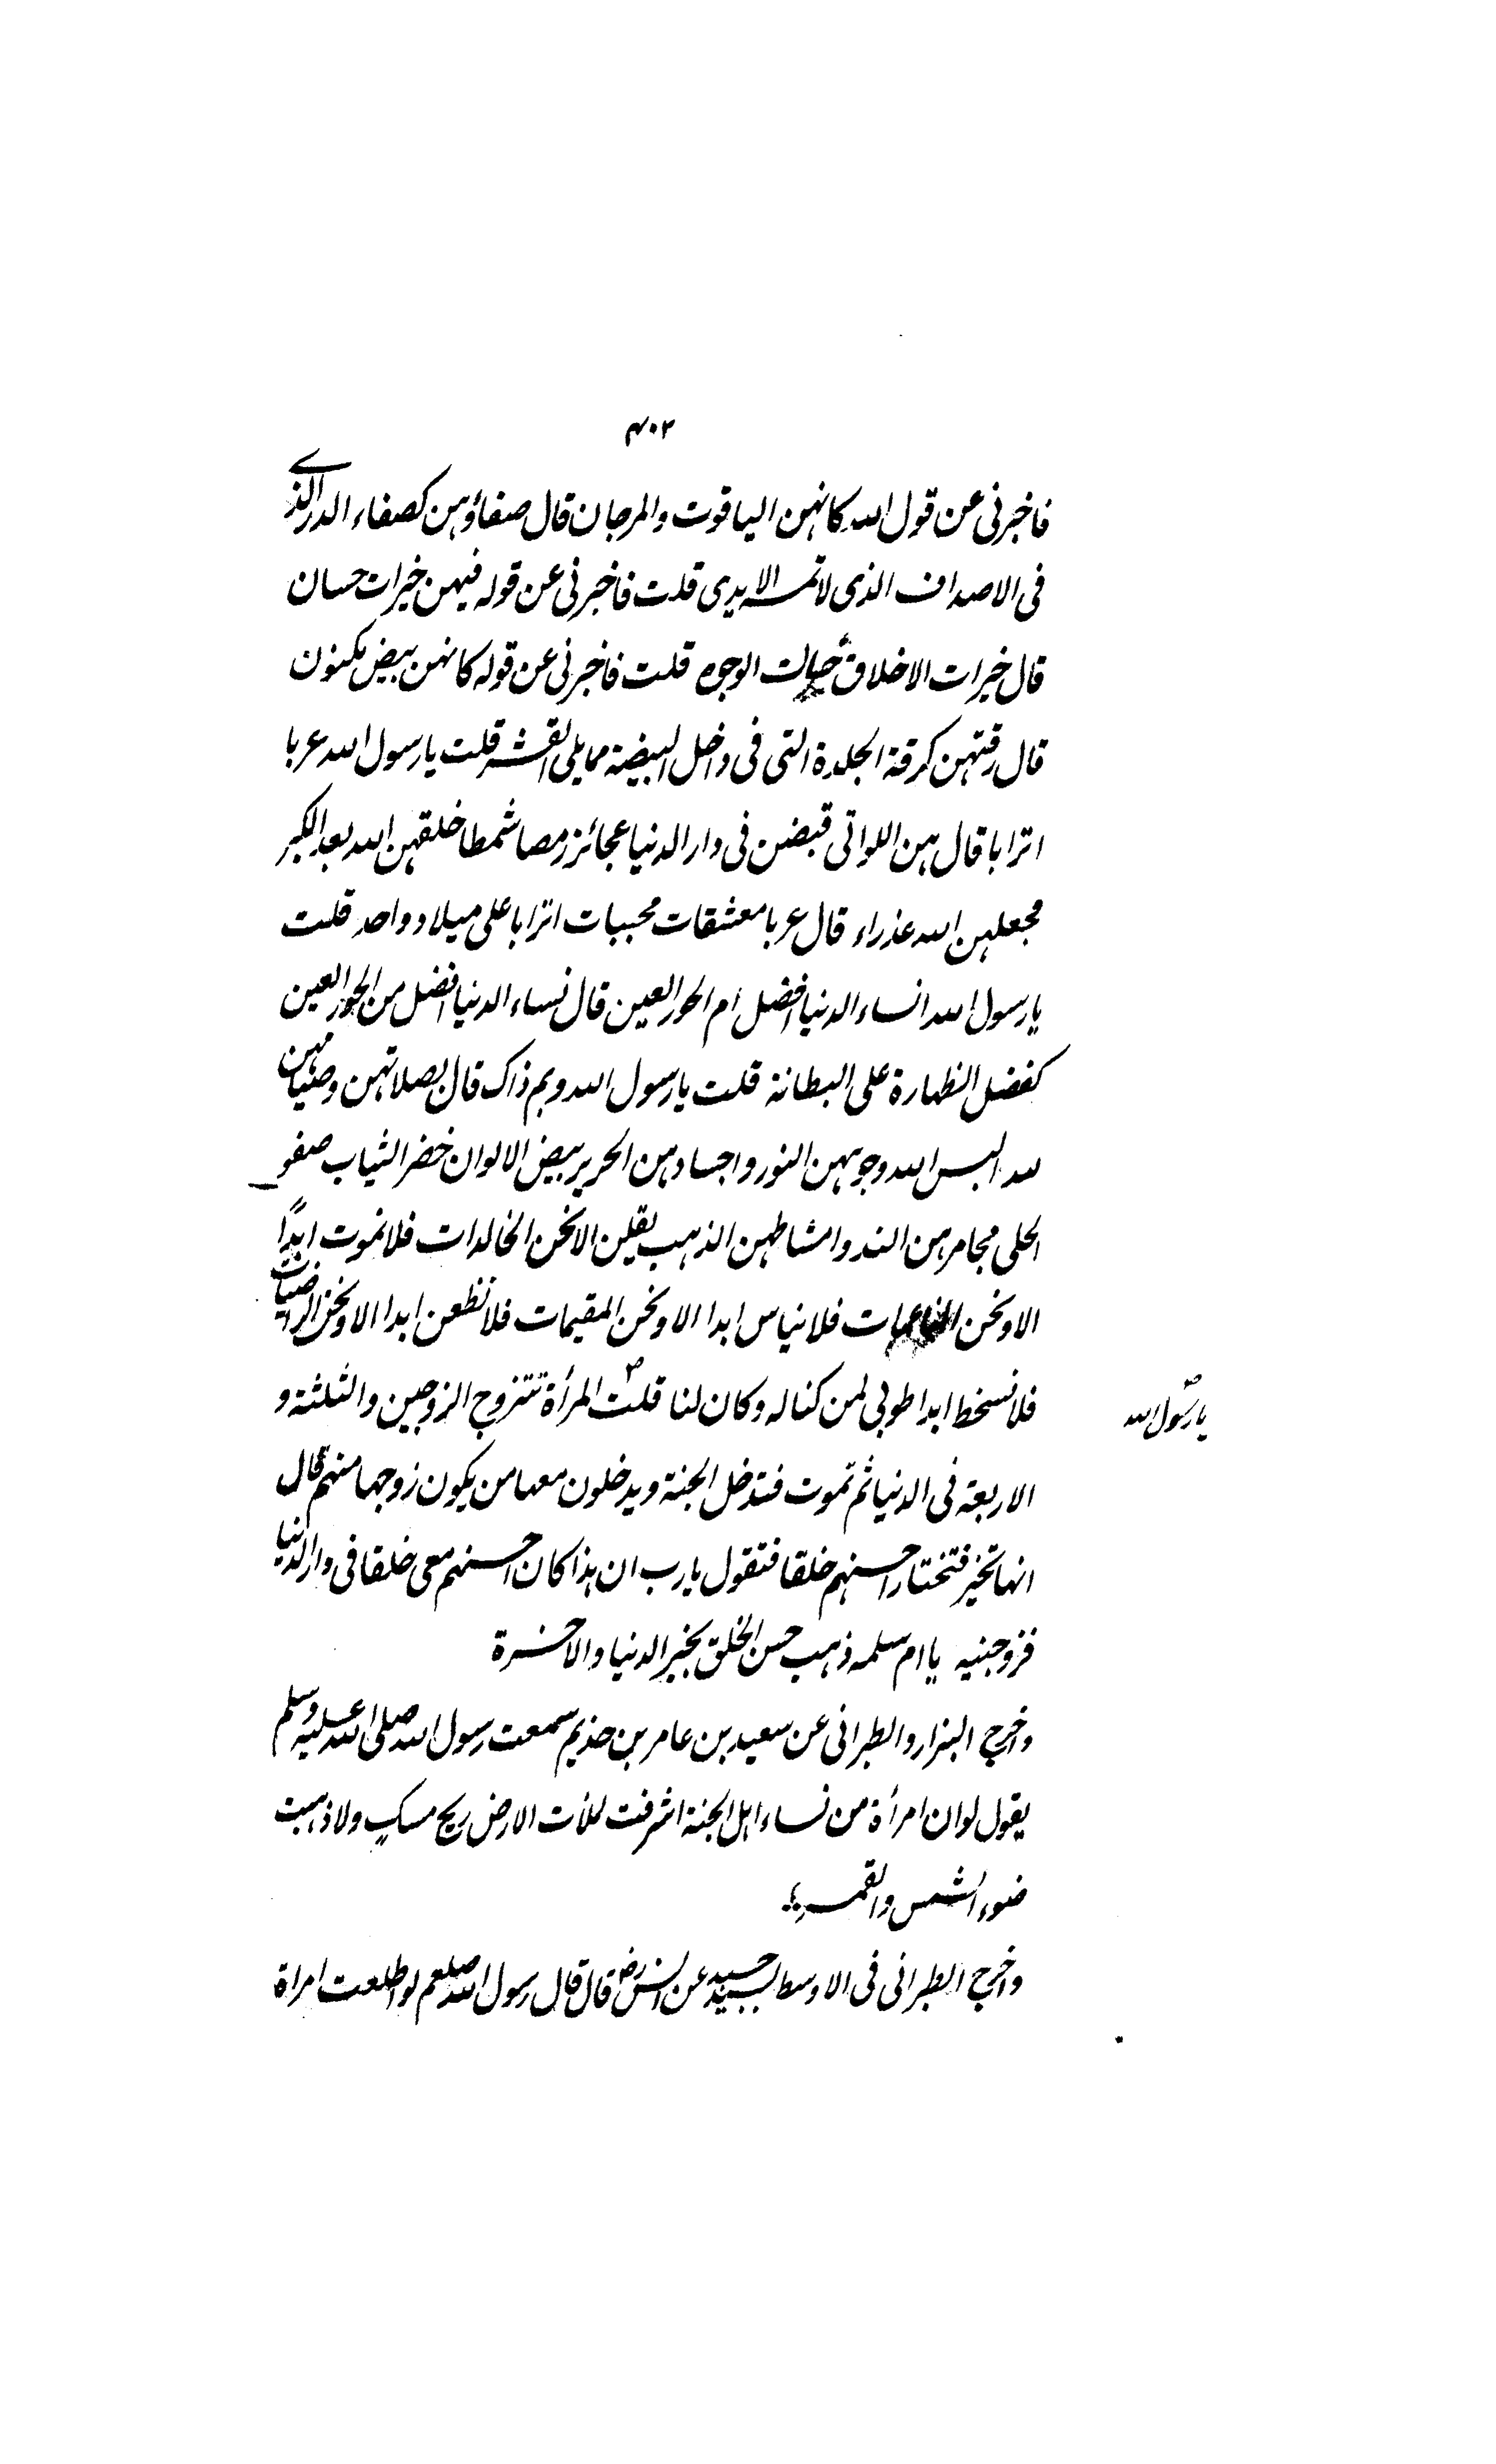 ۴۰۲
فاخبرنی عن قول الله کانهن الیاقوت والمرجان قال صفاؤهن کصفاء الدر الذے
فی الاصداف الذی لا تمسه الایدی قلت فاخبرنی عن قوله فیهن خیرات حسان
قال خیرات الاخلاق حسان الوجوه قلت فاخبرنی عن قوله کانهن بیض مکنون
قال رقتهن کرقة الجلدة التی فی داخل البیضة مما یلی القشر قلت یا رسول الله عربا
اترابا قال هن اللواتی قبضن فی دار الدنیا عجائز رمصا شمطا خلقهن الله بعد الکبر
فجعلهن الله عذراء قال عربا معشقات محببات اترابا علی میلاد واحد قلت
یا رسول الله انساء الدنیا افضل أم الحور العین قال نساء الدنیا افضل من الحور العین
کفضل الظهارة علی البطانة قلت یا رسول الله وبم ذاک قال بصلاتهن وصیامهن
لله البس الله وجوههن النور واجسادهن الحریر بیض الالوان خضر الثیاب صفر
الحلی مجامرهن الند وامشاطهن الذهب یقلن الا نحن الخالدات فلا نموت ابدًا
الا ونحن الناعمات فلا نیاس ابدا الا ونحن المقیمات فلا نظعن ابدا الا ونحن الراضیات
فلا نسخط ابدا طوبی لمن کنا له وکان لنا قلتؐ المرأة تتزوج الزوجین والثلثة و
یا رسول الله ؐ
الاربعة فی الدنیا ثم تموت فتدخل الجنة ویدخلون معها من یکون زوجها منهم قال
انها تخیر فتختار احسنهم خلقا فتقول یا رب ان هذا کان احسنهم معی خلقا فی دار الدنیا
فزوجنیه یا ام سلمه ذهب حسن الخلق بخیر الدنیا والآخرة
واخرج البزار والطبرانی عن سعید بن عامر بن حذیم سمعت رسول الله صلی الله علیه وسلم
یقول لو ان امرأة من نساء اهل الجنة اشرفت لملأت الارض ریح مسکٍ ولاذهبت
ضوء الشمس والقمر؛
واخرج الطبرانی فی الاوسط بسند جید عن انس رض قال قال رسول الله صلعم لو اطلعت امراة